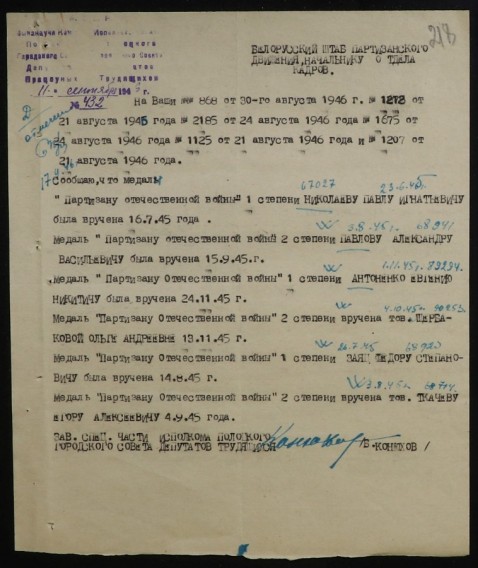 218
БЕЛОРУССКИЙ ШТАБ ПАРТИЗАНСКОГО
ДВИЖЕНИЯ, НАЧАЛЬНИКУ О ТДЕЛА
КАДРОВ.
Трудящихся
11. сентября 194
№ 432
На Ваши №№ 868 от 30-го августа 1946 г. № 1272 от
21 августа 1945 года № 2185 от 24 августа 1946 № 1675 от
24 августа 1946 года № 1125 от 21 августа 1946 года и № 1207 от
21 августа 1946 года.
Сообщаю, что медаль
67027 23-6-45г
" Партизану отечественной войны" 1 степени НИКОЛАЕВУ ПАВЛУ ИГНАТЬЕВИЧУ
была вручена 16.7.45 года .
3.8.45г. 68941
Медаль " Партизану отечественной войны" 2 степени ПАВЛОВУ АЛЕКСАНДРУ
ВАСИЛЬЕВИЧУ была вручена 15.9.45г.
1.11.45г. 73234.
Медаль "Партизану Отечественной войны" 1 степени АНТОНЕНКО ЕВГЕНИЮ
НИКИТИЧУ была вручена 24.11.45 г.
4.10.45г.
Медаль "Партизану Отечественной войны" 2 степени вручена тов. ЩЕРБА-
КОВОЙ ОЛЬГЕ АНДРЕЕВНЕ 13.11.45 г.
Медаль "Партизану Отечественной войны" 1 степени ЗАЯЦ ФЕДОРУ СТЕПАНО-
ВИЧУ была вручена 14.8.45 г.
3.8.45г.
Медаль "Партизану Отечественной войны" 2 степени вручена тов. ТКАЧЕВУ
ЕГОРУ АЛЕКСЕЕВИЧУ 4.9.45 года.
ЗАВ. СПЕЦ. ЧАСТИ ИСПОЛКОМА ПОЛОЦКОГО
ГОРОДСКОГО СОВЕТА ДЕПУТАТОВ ТРУДЯЩИХСЯ /В. КОНЮХОВ /